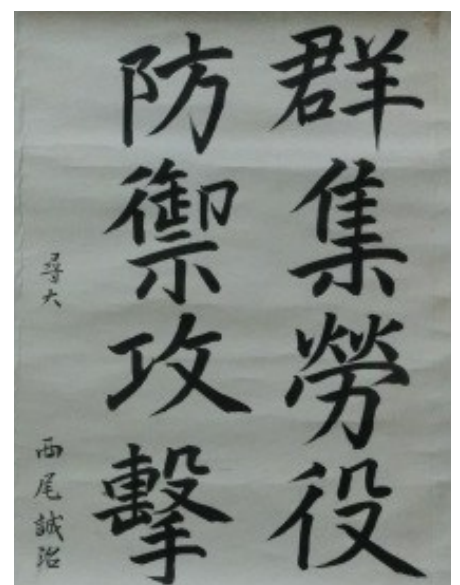 群集勞役
防禦攻擊
尋大 西尾誠治